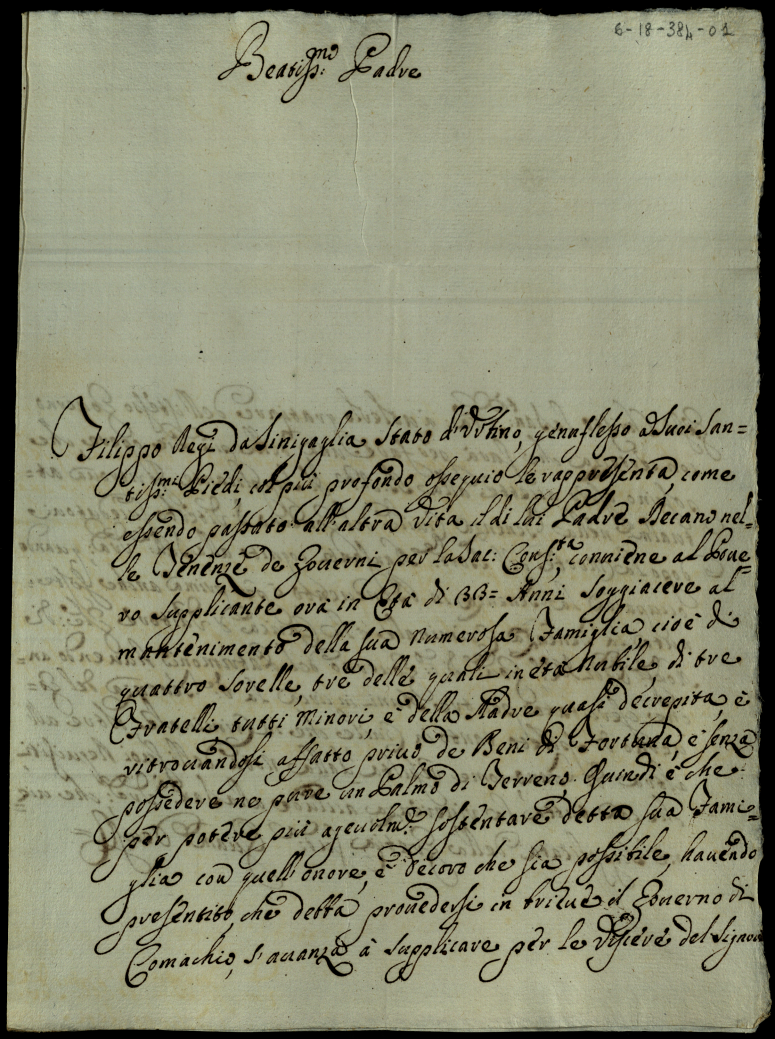 6-18-384-01
Beatiss:mo Padre
Filippo Regi da Sinigaglia Stato d'Vrbino, genuflesso a Suoi San=
tiss:mi Piedi, col più profondo ossequio le rappresenta, come
essendo passato all'altra Vita il di lui Padre Decano nel=
le Tenenze de Gouerni per la Sac: Cons:ta, conuiene al Poue=
ro supplicante ora in Età di 33= Anni soggiacere al
mantenimento della sua numerosa Famiglia, cioè di
quattro Sorelle, tre delle quali in età Nubile, di tre
Fratelli tutti Minori, e della Madre quasi decrepita, e
ritrouandosi affatto priuo de Beni di Fortuna, e senza
possedere ne pure un Palmo di Terreno. Quindi è che
per potere più ageuolm:te sostentare detta sua Fami=
glia con quell'onore, e decoro che sia possibile, hauendo
presentito, che debba prouedersi in brieue il Gouerno di
Comachio, s'auanza à supplicare per le Viscere del Signore